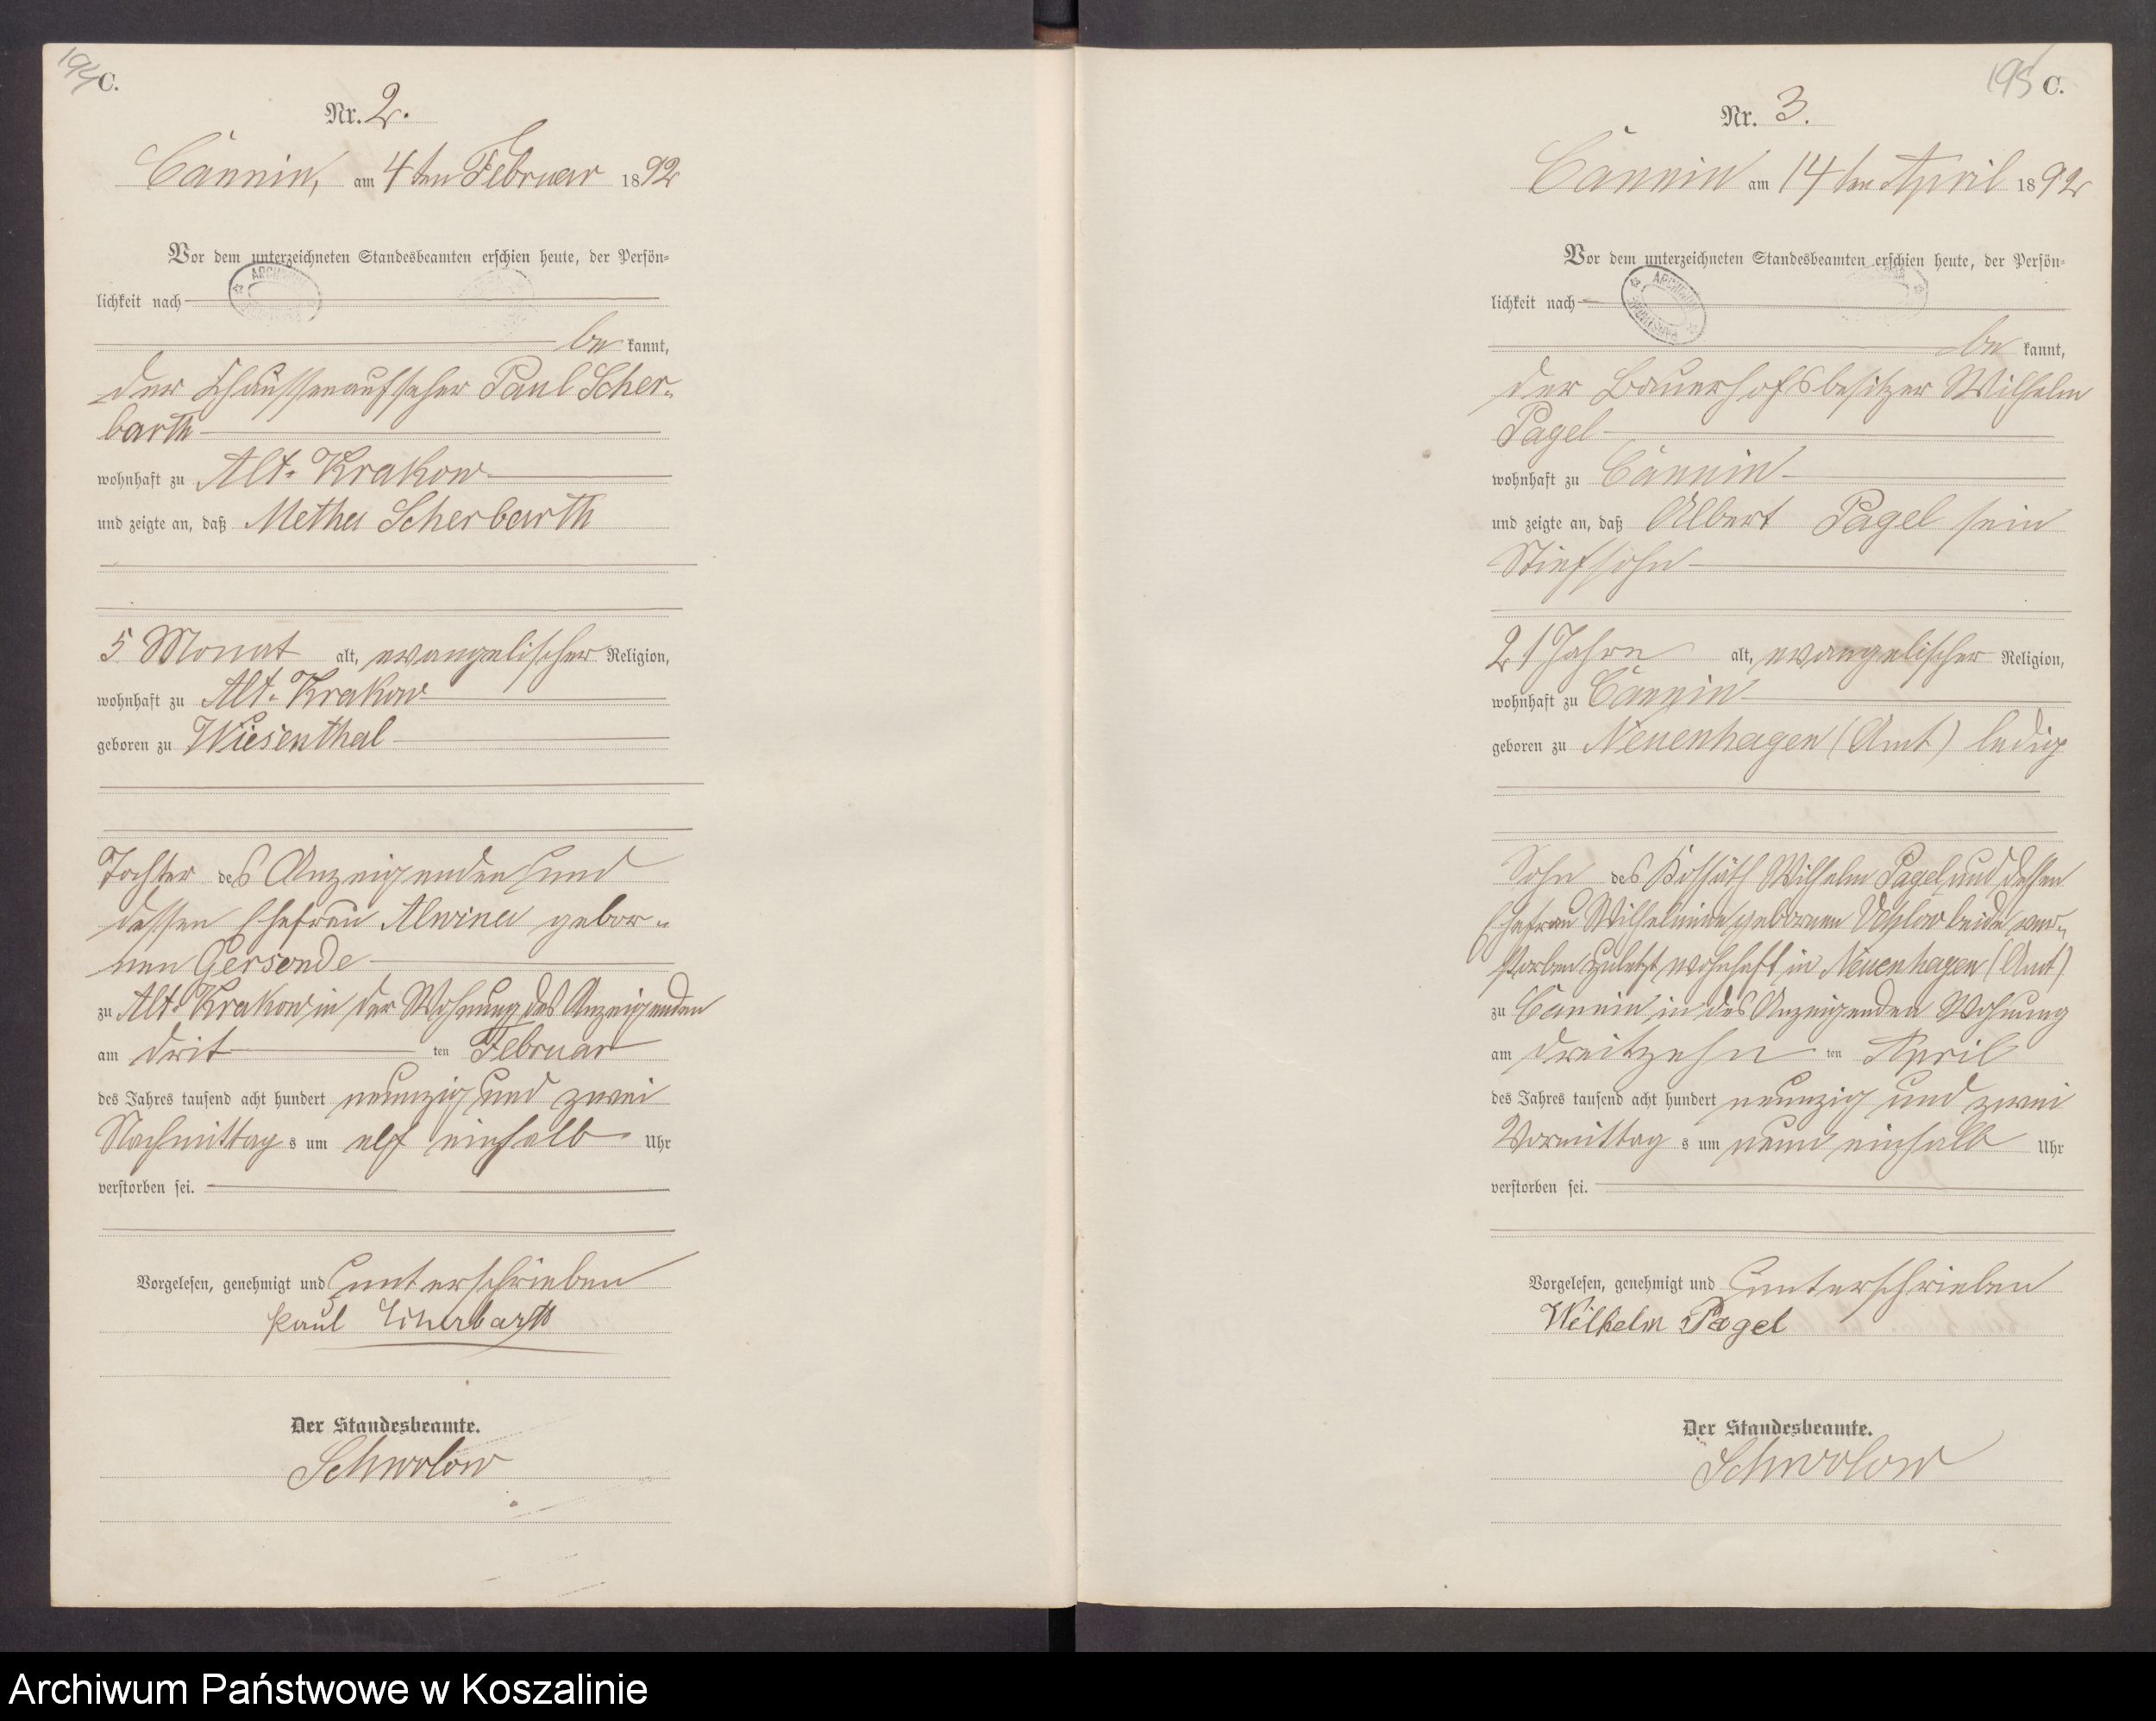 194 C.
Nr. 2.
Cännin, am 4ten Februar 1892
Vor dem unterzeichneten Standesbeamten erschien heute, der Persön-
lichkeit nach
be kannt,
der Chausseeaufseher Paul Scher-
barth
wohnhaft zu Alt-Krakow
und zeigte an, daß Metha Scherbarth
5 Monat alt, evangelischer Religion,
wohnhaft zu Alt-Krakow
geboren zu Wiesenthal
Tochter des Anzeigenden und
dessen Ehefrau Alwina gebor-
nen Gersonde
zu Alt-Krakow in der Wohnung des Anzeigenden
am drit ten Februar
des Jahres tausend acht hundert neunzig und zwei
Nachmittag s um elf einhalb Uhr
verstorben sei.
Vorgelesen, genehmigt und unterschrieben
Paul Scherbarth
Der Standesbeamte.
Schwolow
195 C.
Nr. 3.
Cännin am 14ten April 1892
Vor dem unterzeichneten Standesbeamten erschien heute, der Persön-
lichkeit nach
be kannt,
der Bauerhofsbesitzer Wilhelm
Pagel
wohnhaft zu Cännin
und zeigte an, daß Albert Pagel sein
Stiefsohn
21 Jahre alt, evangelischer Religion,
wohnhaft zu Cännin
geboren zu Neuenhagen (Amt) ledig
Sohn des Kossäth Wilhelm Pagel und dessen
Ehefrau Wilhelmine gebornen beide ver-
storben zuletzt wohnhaft in Neuenhagen (Amt)
zu Cännin in des Anzeigenden Wohnung
am dreizehn ten April
des Jahres tausend acht hundert neunzig und zwei
Vormittag s um neun einhalb Uhr
verstorben sei.
Vorgelesen, genehmigt und unterschrieben
Wilhelm Pagel
Der Standesbeamte.
Schwolow
Archiwum Państwowe w Koszalinie